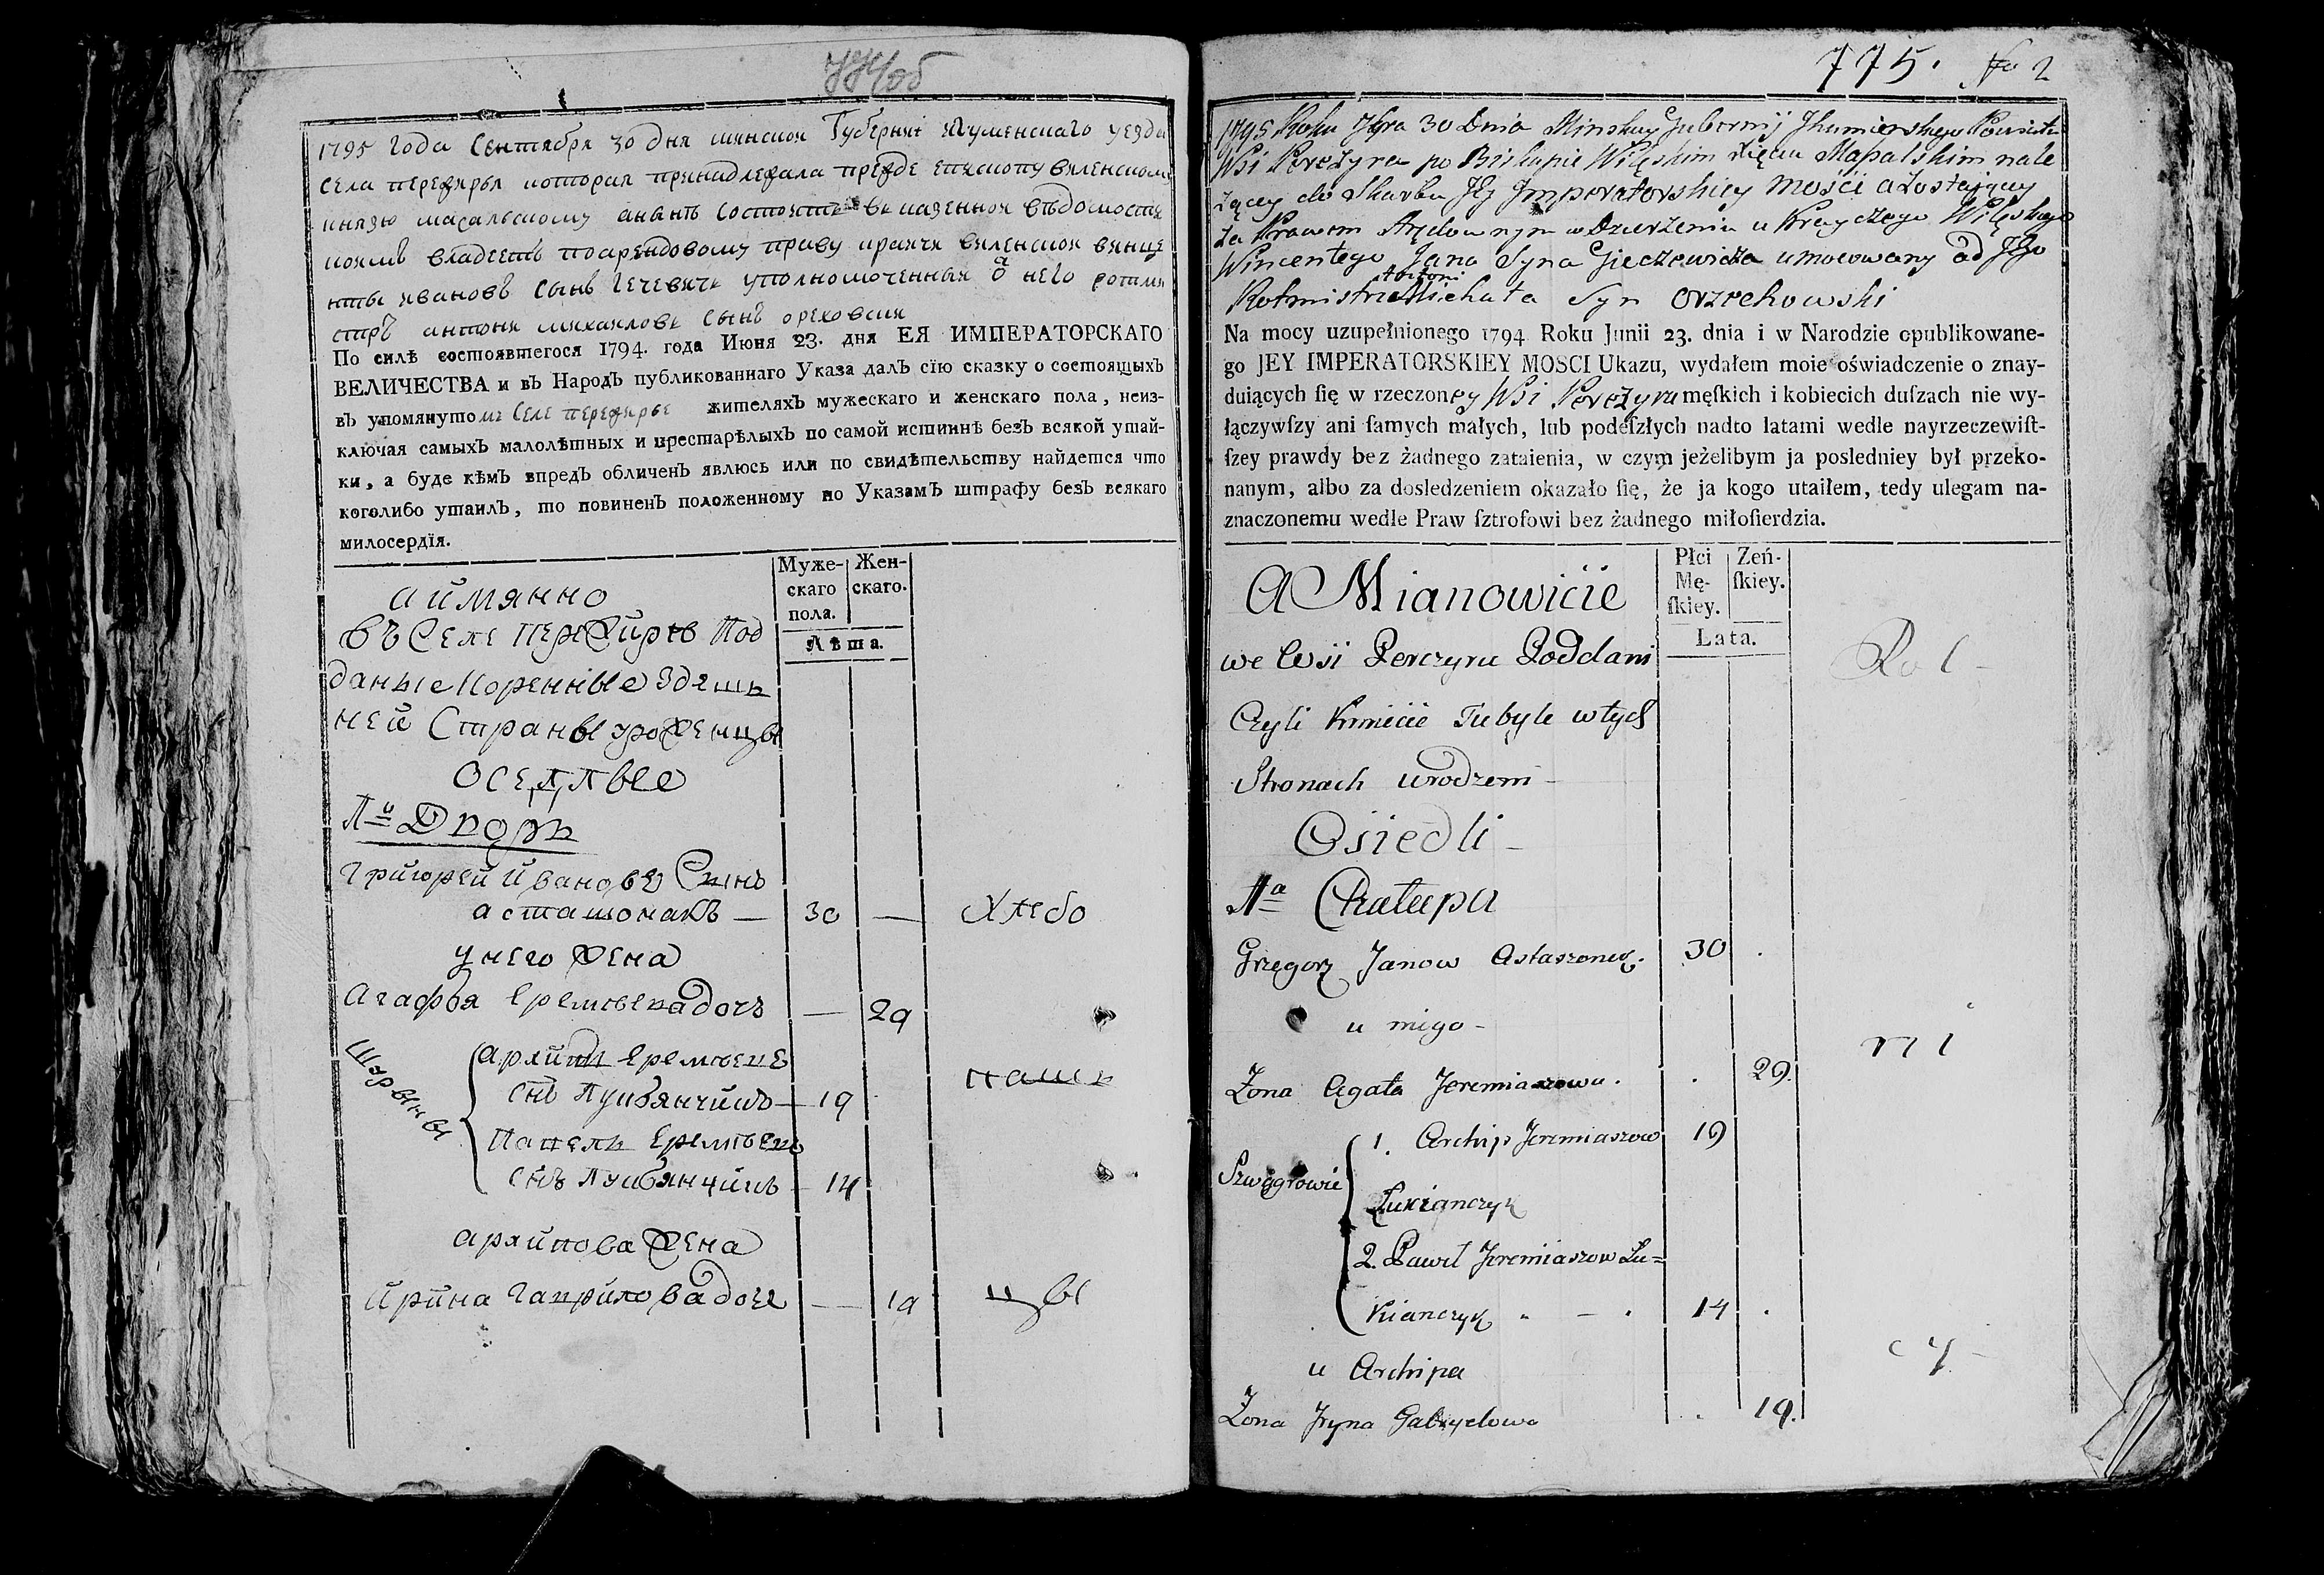 774об
1795 года Сентября 30 дня минской Губернии Игуменскаго уезда
села пережирья которая принадлежала прежде епископу виленскому
князю масальскому а нынѣ состоитъ въ казенной вѣдомости
коимъ владеетъ по арендовому праву крайчи виленской винце
нты ивановъ сынъ гечевичъ уполномоченный от него ротми
стръ антони михаиловъ сынъ ореховски
По силѣ состоявшегося 1794. года Июня 23. дня ЕЯ ИМПЕРАТОРСКАГО
ВЕЛИЧЕСТВА и въ Народъ публикованнаго Указа далъ сїю сказку о состоящыхъ
въ упомянутомъ селе пережирье жителяхъ мужескаго и женскаго пола, неиз-
ключая самыхъ малолѣтныхъ и престарѣлыхъ по самой истиннѣ безъ всякой утай-
ки, а буде кѣмъ впредь обличенъ явлюсь или по свидѣтельству найдется что
коголибо утаилъ, то повиненъ положенному по Указамъ штрафу безъ всякаго
милосердїя.
Муже-скаго пола. Жен-скаго.
Лѣта.
а иймянно
въ Селе пережирье Под
даные коренные здешь
ней Страны уроженцы
оселлые
1й Дворъ
Григорей ивановъ Сынъ
асташонакъ — 30 — Хлебо
у него жена
Агафья Еремеева дочь — 29
Шурыны
архипъ Еремеевъ
снъ лукьянчикъ — 19 паш
Павелъ Еремеевъ
снъ лукьянчикъ — 14
архипова жена
ирина гаврилова дочь — 19 цы
775. No 2
1795 Roku 7bra 30 Dnia Minskey Gubernij Jhumienskiego Powiatu
Wsi Pereżyra po Biskupie Wileńskim Xięciu Massalskim nale
żącey do Skarbu Jey Imperatorskiey Mości a zostającey
za Prawem Arędownym w Dzierżeniu u Krayczego Wileńskiego
Wincentego Jana Syna Gieczewicza umocowany od Jego
Antoni
Rotmistrz Michała Syn Orzechowski
Na mocy uzupełnionego 1794 Roku Junii 23. dnia i w Narodzie opublikowane-
go JEY IMPERATORSKIEY MOSCI Ukazu, wydałem moie oświadczenie o znay-
duiących ſię w rzeczoney Wsi Pereżyru męſkich i kobiecich duſzach nie wy-
łączywſzy ani ſamych małych, lub podeſzłych nadto latami wedle nayrzeczewiſt-
ſzey prawdy bez żadnego zataienia, w czym jeżelibym ja posledniey był przeko-
nanym, albo za dosledzeniem okazało ſię, że ja kogo utaiłem, tedy ulegam na-
znaczonemu wedle Praw ſztrofowi bez żadnego miłoſierdzia.
Płci Mę-ſkiey. Zeń-ſkiey.
Lata.
A Mianowicie
we Wsi Perezyru Poddani Rol
Czyli Kmiecie Tubyle w tych
Stronach urodzeni
Osiedli
1a Chałupa
Grzegorz Janow Astaszonek. 30 .
u niego
Zona Agata Jeremiaszowa. . 29. ni
Szwagrowie
1. Archip Jeremiaszow 19
Lukianczyk
2. Paweł Jeremiaszow Lu=
kianczyk 14 .
u Archipa cy
Zona Jryna Gabryelowa . 19.